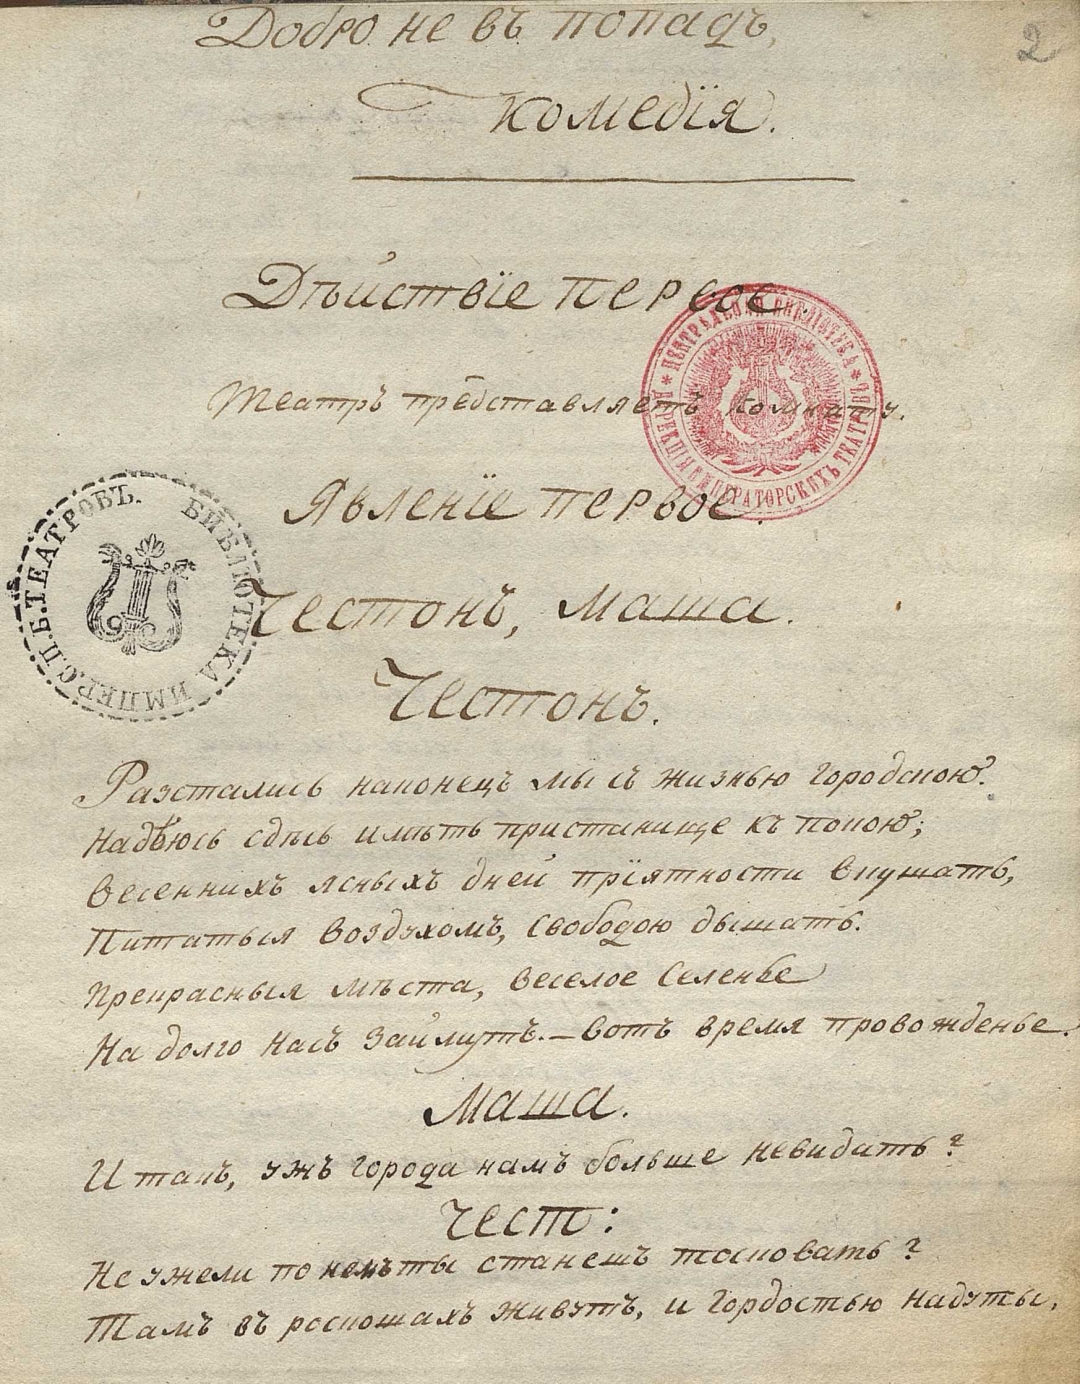 Добро не въ попадъ,
2
Комедїя.
Дѣйствїе перьвое.
Театръ прéдставляетъ комнату.
Явленїе первое.
Честонъ, Маша.
Честонъ.
Разстались наконецъ мы съ жизнью городскою.
Надѣюсь сдѣсь имѣть пристанище къ покою;
Весеннихъ ясныхъ дней прїятности вкушать,
Питаться воздухомъ, свободою дышать.
Прекрасныя мѣста, веселое селенье
На долго насъ займутъ. – вотъ время провожденье.
Маша.
И такъ, ужъ города намъ больше невидать?
Чест:
Не ужели по немъ ты станешь тосковать?
Тамъ въ роскошахъ живутъ, и гордостью надуты,
ЦЕНТРАЛЬНАЯ БИБЛІОТЕКА * ДИРЕКЦІИ ИМПЕРАТОРСКИХЪ ТЕАТРОВЪ *
БИБЛІОТЕКА ИМПЕР. С.П.Б. ТЕАТРОВЪ.